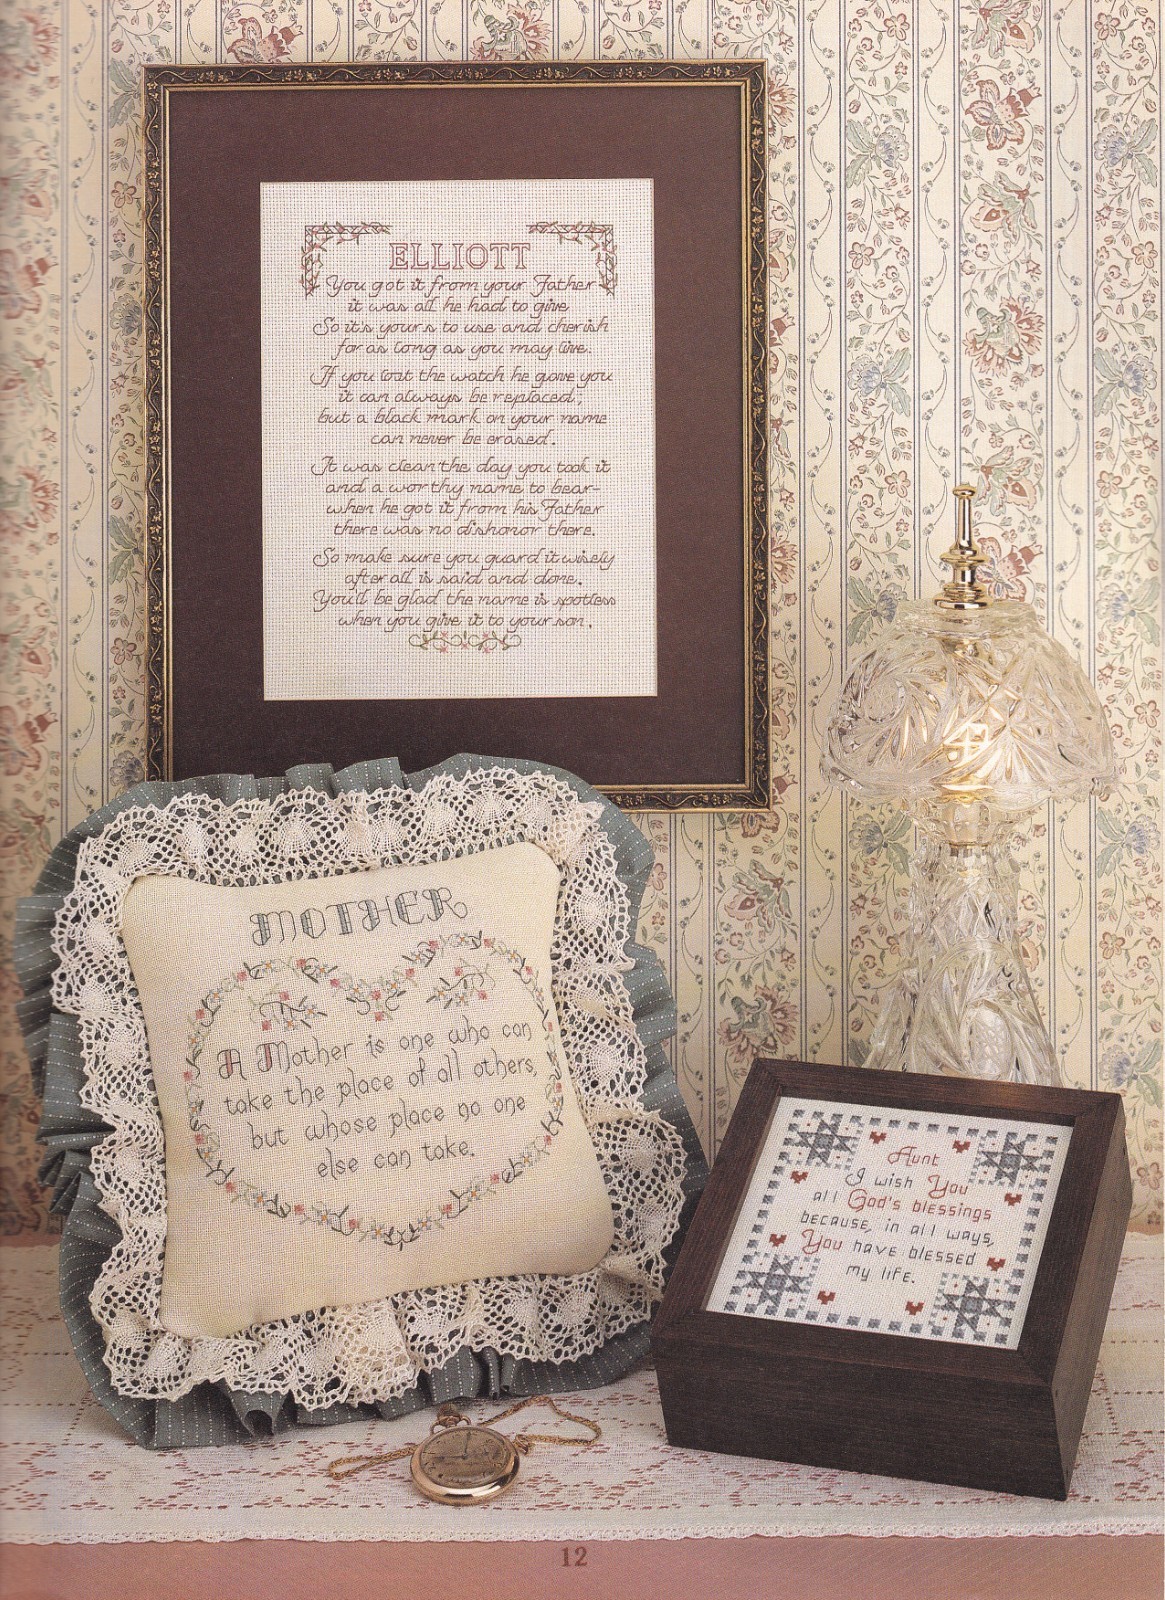 ELLIOTT
You got it from your Father
it was all he had to give
So it's yours to use and cherish
for as long as you may live.
If you lost the watch he gave you
it can always be replaced;
but a black mark on your name
can never be erased.
It was clean the day you took it
and a worthy name to bear-
when he got it from his Father
there was no dishonor there.
So make sure you guard it wisely
after all is said and done.
You'll be glad the name is spotless
when you give it to your son.
MOTHER
A Mother is one who can
take the place of all others,
but whose place no one
else can take.
Aunt
I wish You
all God's blessings
because, in all ways,
You have blessed
my life.
12